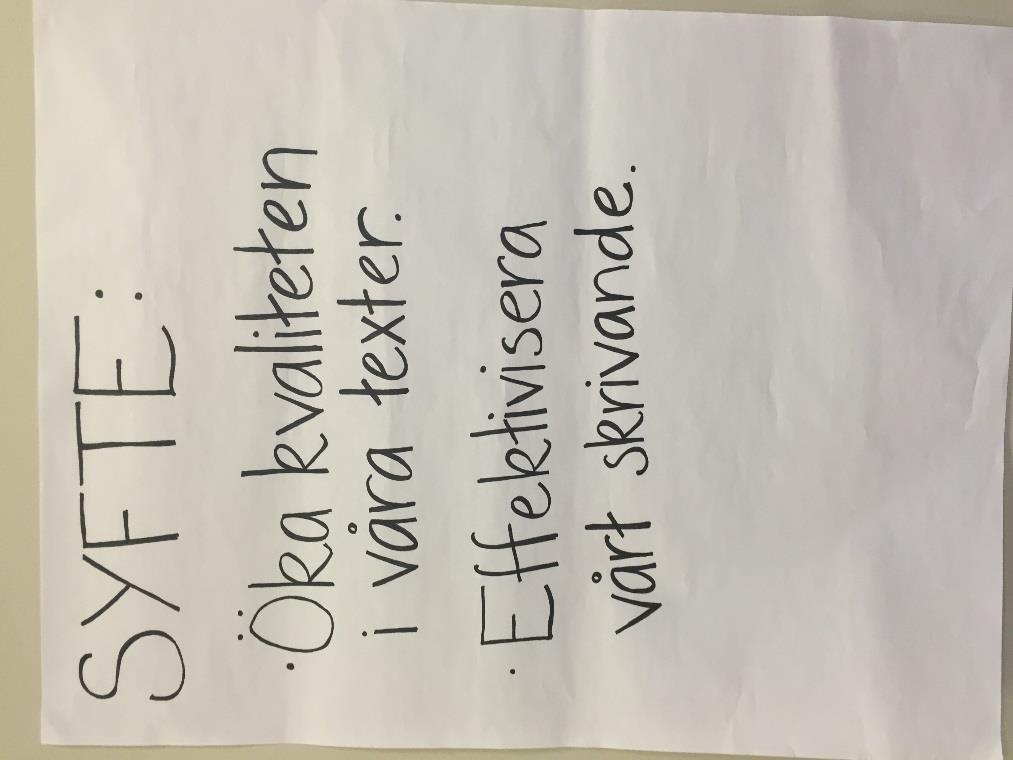 SYFTE:
· Öka kvaliteten
i våra texter.
· Effektivisera
vårt skrivande.